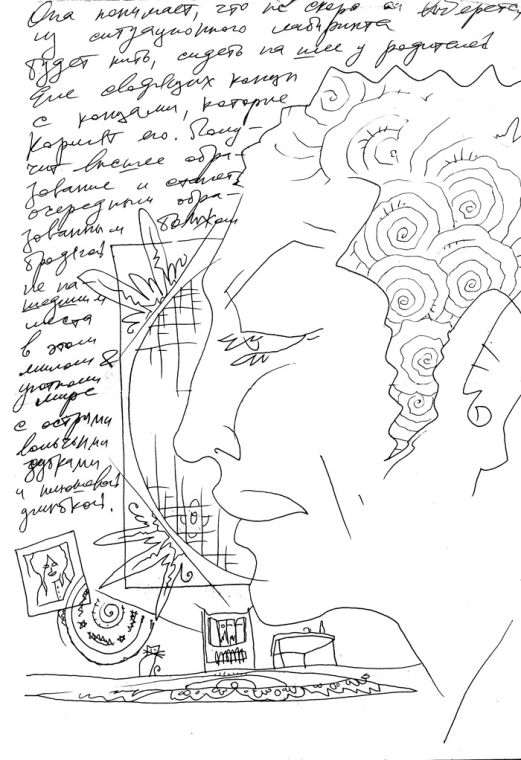 Она понимает, что не скоро он выберется,
из ситуационного лабиринта
будет пить, сидеть на шее у родителей
Еле сводящих концы
с концами, которые
кормят его. Полу-
чит высшее обра-
зование и станет
очередным обра-
зованным бомжом
бродягой
не на-
шедшим
места
в этом
милом &
уютном
мире
с острыми
волчьими
зубками
и плюшевой
улыбкой.